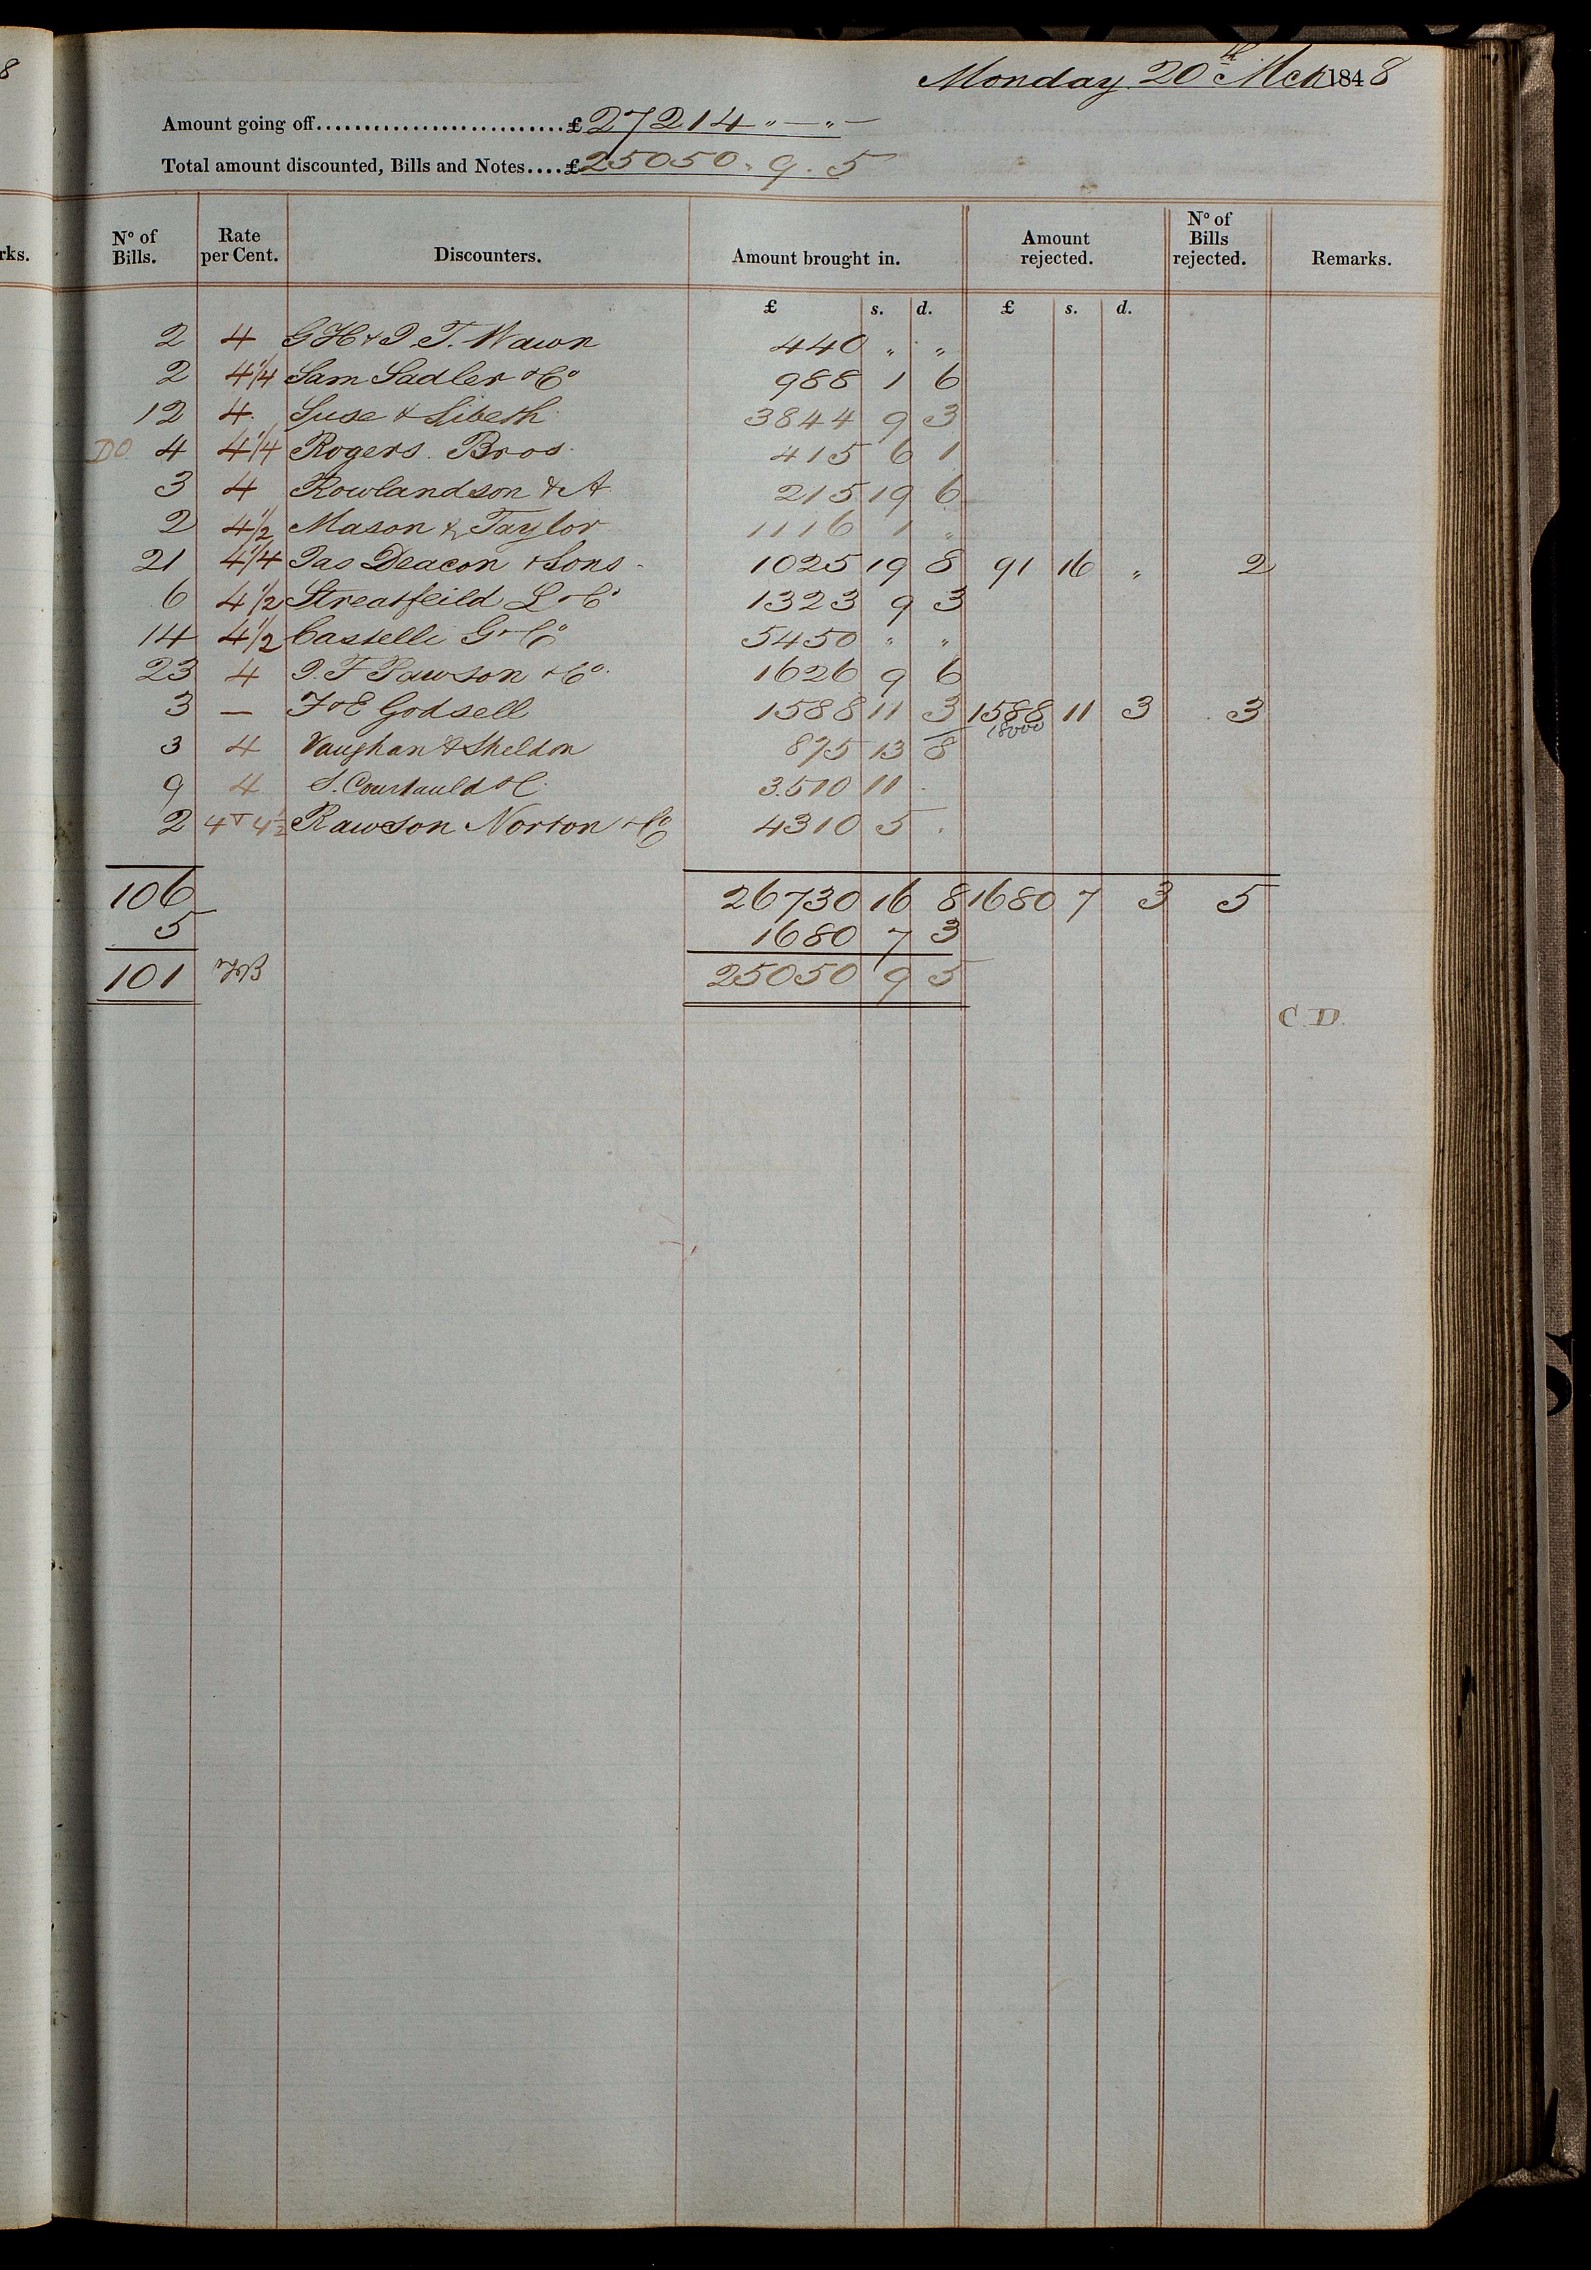 8
Monday 20th Mch 1848
Amount going off..........................£27214 „ — „ —
Total amount discounted, Bills and Notes....£25050 „ 9 . 5
rks.
No of Bills. Rate per Cent. Discounters. Amount brought in. Amount rejected. No of Bills rejected. Remarks.
£ s. d. £ s. d.
2 4 GH & J. T. Wawn 440 „ „
2 4 1/4 Sam Sadler & Co 988 1 6
12 4 Suse & Sibeth 3844 9 3
DO 4 4 1/4 Rogers Bros 415 6 1
3 4 Rowlandson & A 215 19 6
2 4 1/2 Mason & Taylor 1116 1 „
21 4 1/4 Jas Deacon & Sons 1025 19 8 91 16 „ 2
6 4 1/2 Streatfeild L & Co 1323 9 3
14 4 1/2 Castelli G & Co 5450 „ „
23 4 J. F Pawson & Co. 1626 9 6
3 — F & E Godsell 1588 11 3 1588 11 3 3
18000
3 4 Vaughan & Sheldon 875 13 8
9 4 S. Courtauld & C. 3510 11 .
2 4 & 4 1/2 Rawson Norton & Co 4310 5 .
106 26730 16 8 1680 7 3 5
5 1680 7 3
101 25050 9 5
C.D.